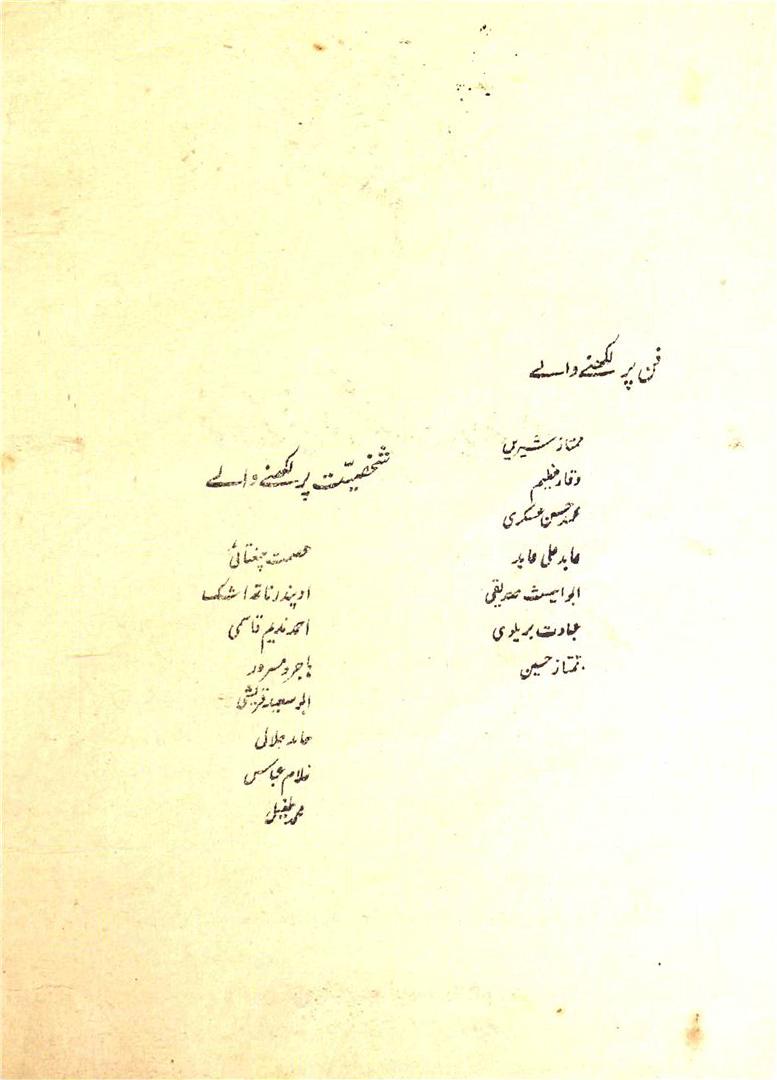 فن پر لکھنے والے
ممتاز شیریں
وقار عظیم
محمد حسن عسکری
عابد علی عابد
ابواللیث صدیقی
عبادت بریلوی
ممتاز حسین
شخصیّت پر لکھنے والے
عصمت چغتائی
اوپندر ناتھ اشک
احمد ندیم قاسمی
ہاجرہ مسرور
ابو سعید قریشی
حامد جلالی
غلام عباس
محمد طفیل